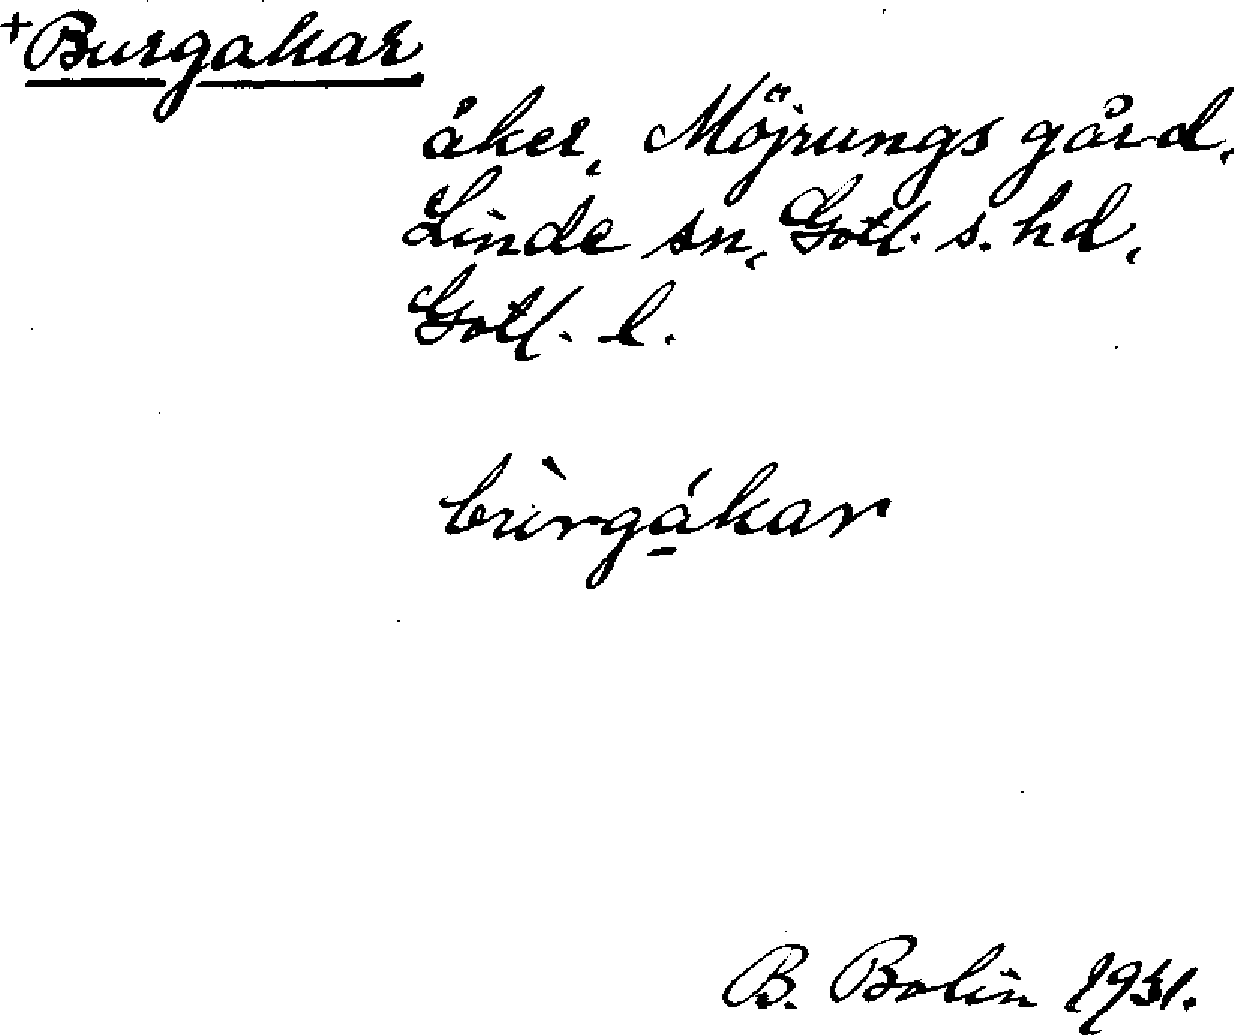 +Burgakar
åker, Möjrungs gård,
Linde sn, Gotl. s. hd,
Gotl. l.
bùrgákar
B. Bolin 1931.